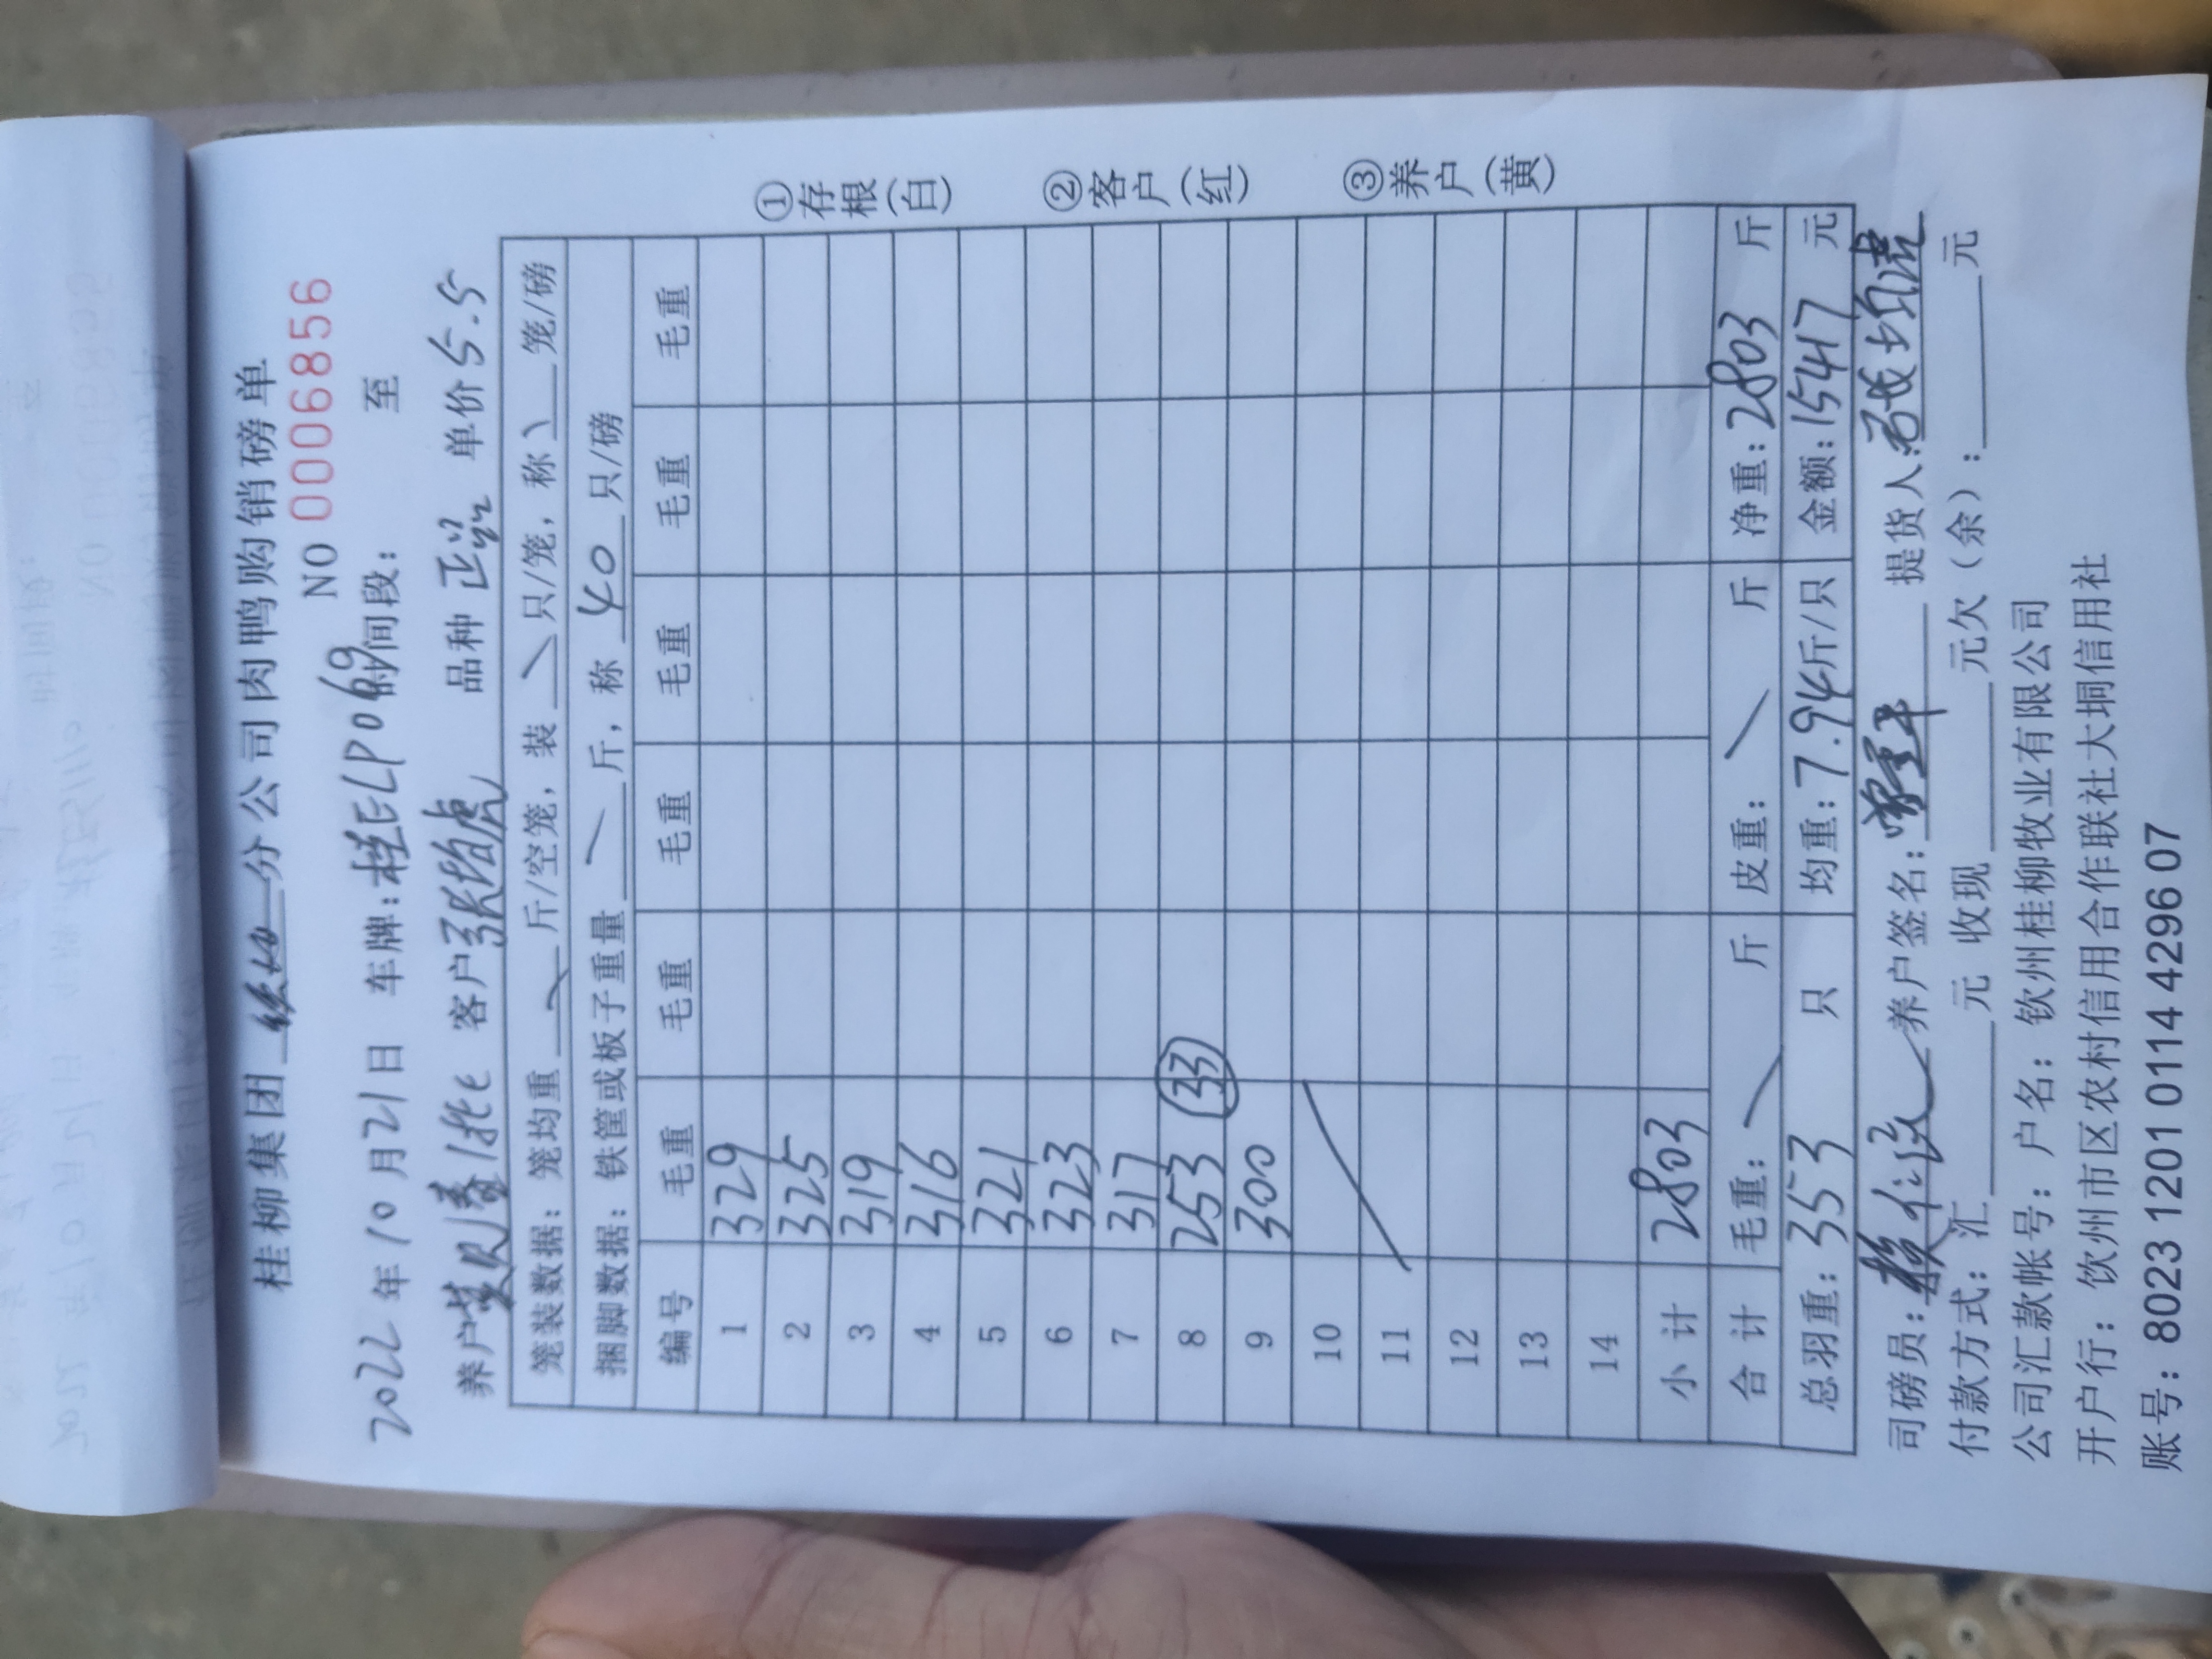 桂柳集团 分公司肉鸭购销磅单
NO 0006856
2022年10月21日 车牌:桂ELP069 时间段: 至
养户 客户 张均虎 品种 正常 单价 5.5
笼装数据:笼均重 斤/空笼,装 只/笼,称 笼/磅
捆脚数据:铁筐或板子重量 斤,称 40 只/磅
编号 毛重 毛重 毛重 毛重 毛重 毛重
1 329
2 325
3 319
4 316
5 321
6 323
7 317
8 253 (33)
9 300
10
11
12
13
14
小计 2803
合计 毛重: 斤 皮重: 斤 净重:2803 斤
总羽重:353 只 均重:7.94斤/只 金额:15417 元
司磅员: 养户签名: 提货人:
付款方式:汇 元 收现 元欠(余): 元
公司汇款帐号:户名:钦州桂柳牧业有限公司
开户行:钦州市区农村信用合作联社大垌信用社
账号:8023 1201 0114 4296 07
①存根(白) ②客户(红) ③养户(黄)